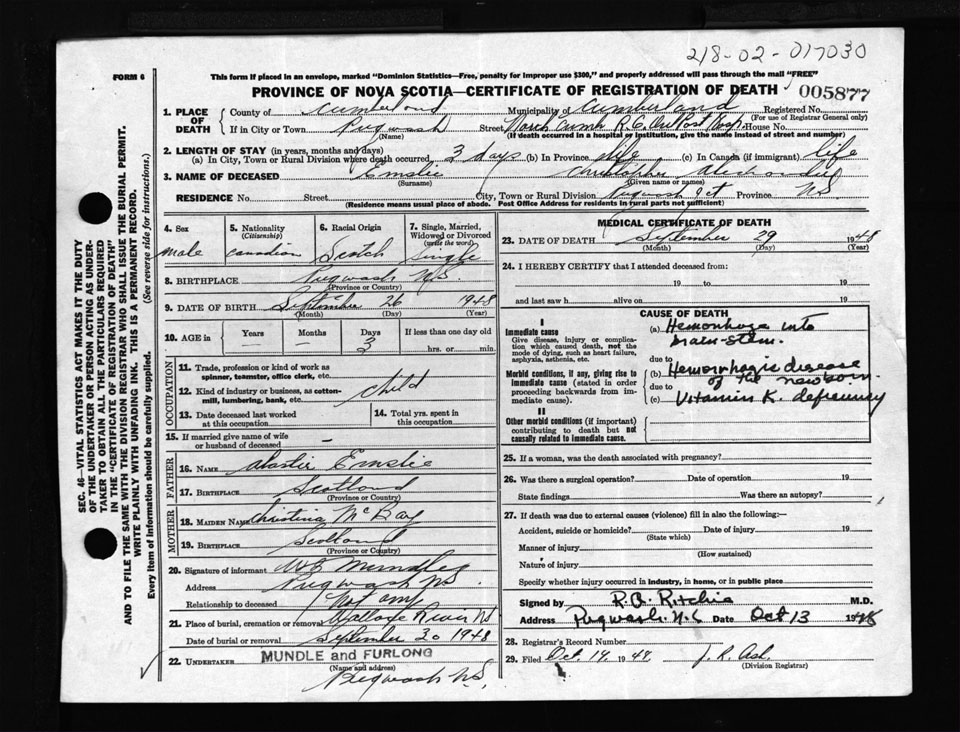 218-02-017030
FORM 6
This form if placed in an envelope, marked "Dominion Statistics—Free, penalty for improper use $300," and properly addressed will pass through the mail "FREE"
PROVINCE OF NOVA SCOTIA—CERTIFICATE OF REGISTRATION OF DEATH
005877
1. PLACE OF DEATH
County of Cumberland Municipality of Cumberland Registered No.
(For use of Registrar General only)
If in City or Town Pugwash Street North Cumb R.C. Outpost Hosp. House No.
(Name) (If death occurred in a hospital or institution, give the name instead of street and number)
2. LENGTH OF STAY (in years, months and days)
(a) In City, Town or Rural Division where death occurred, 3 days (b) In Province life (c) In Canada (if immigrant) life
3. NAME OF DECEASED Emslie Christopher
(Surname) (Given name or names)
RESIDENCE No. Street City, Town or Rural Division Pugwash Jct Province NS
(Residence means usual place of abode. Post Office Address for residents in rural parts not sufficient)
4. Sex
male
5. Nationality
(Citizenship)
Canadian
6. Racial Origin
Scotch
7. Single, Married, Widowed or Divorced
(write the word)
Single
8. BIRTHPLACE Pugwash NS
(Province or Country)
9. DATE OF BIRTH September 26 1948
(Month) (Day) (Year)
10. AGE in
Years Months Days If less than one day old
— — 3 hrs. or min.
OCCUPATION
11. Trade, profession or kind of work as spinner, teamster, office clerk, etc.
12. Kind of industry or business, as cotton-mill, lumbering, bank, etc. child
13. Date deceased last worked at this occupation
14. Total yrs. spent in this occupation
15. If married give name of wife or husband of deceased —
FATHER
16. NAME Alastir Emslie
17. BIRTHPLACE Scotland
(Province or Country)
MOTHER
18. MAIDEN NAME Christina McBay
19. BIRTHPLACE Scotland
(Province or Country)
20. Signature of informant Mundle
Address Pugwash NS
Relationship to deceased Not any
21. Place of burial, cremation or removal Wallace River NS
Date of burial or removal September 30 1948
22. UNDERTAKER MUNDLE and FURLONG
(Name and address)
Pugwash NS.
MEDICAL CERTIFICATE OF DEATH
23. DATE OF DEATH September 29 1948
(Month) (Day) (Year)
24. I HEREBY CERTIFY that I attended deceased from:
19 to 19
and last saw h alive on 19
CAUSE OF DEATH
I
Immediate cause
Give disease, injury or complication which caused death, not the mode of dying, such as heart failure, asphyxia, asthenia, etc.
(a) Hemorrhage into
brain-stem.
due to
Morbid conditions, if any, giving rise to immediate cause (stated in order proceeding backwards from immediate cause).
(b) Hemorrhagic disease
due to of the newborn.
(c) Vitamin K. deficiency
II
Other morbid conditions (if important) contributing to death but not causally related to immediate cause.
25. If a woman, was the death associated with pregnancy?
26. Was there a surgical operation? Date of operation 19
State findings Was there an autopsy?
27. If death was due to external causes (violence) fill in also the following:—
Accident, suicide or homicide? Date of injury 19
(State which)
Manner of injury
(How sustained)
Nature of injury
Specify whether injury occurred in industry, in home, or in public place
Signed by R.B. Ritchie M.D.
Pugwash. N.S. Date Oct 13 1948
28. Registrar's Record Number
29. Filed Oct. 14, 1948 J. R. Ash.
(Division Registrar)
SEC. 46—VITAL STATISTICS ACT MAKES IT THE DUTY
OF THE UNDERTAKER OR PERSON ACTING AS UNDERTAKER TO OBTAIN ALL THE PARTICULARS REQUIRED
IN THE "CERTIFICATE OF REGISTRATION OF DEATH"
AND TO FILE THE SAME WITH THE DIVISION REGISTRAR WHO SHALL ISSUE THE BURIAL PERMIT.
WRITE PLAINLY WITH UNFADING INK. THIS IS A PERMANENT RECORD.
Every item of information should be carefully supplied. (See reverse side for instructions.)